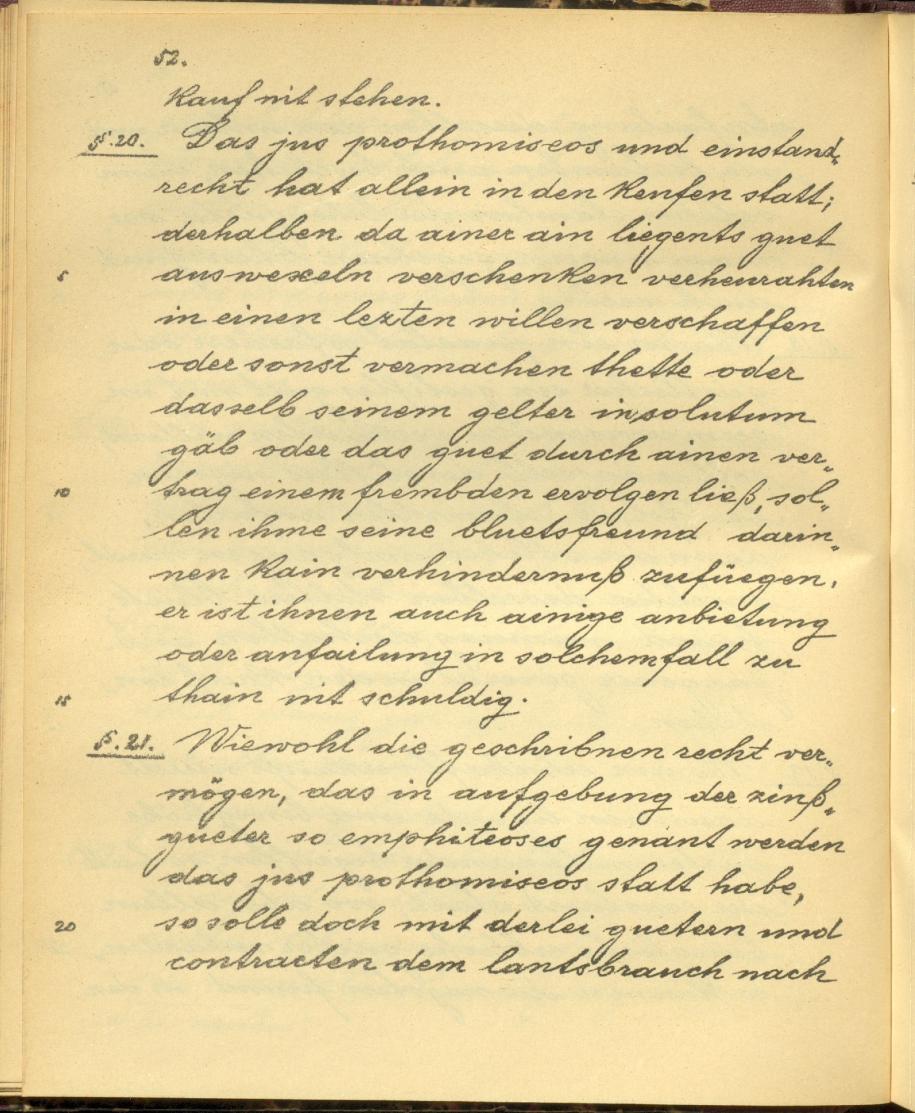 52.
kauf nit stehen.
§.20. Das jus prothomiseos und einstand„
recht hat allein in den keufen statt;
derhalben da ainer ain liegents guet
5 auswexeln verschenken verheurahten
in einen lezten willen verschaffen
oder sonst vermachen thette oder
dasselb seinem gelter insolutum
gäb oder das guet durch ainen ver„
10 trag einem frembden ervolgen ließ, sol„
len ihme seine bluetsfreund darin„
nen kain verhindernuß zufüegen,
er ist ihnen auch ainige anbietung
oder anfailung in solchem fall zu
15 thain nit schuldig.
§.21. Wiewohl die geschribnen recht ver„
mögen, das in aufgebung der zinß„
gueter so emphiteoses genant werden
das jus prothomiseos statt habe,
20 so solle doch mit derlei guetern und
contracten dem lantsbrauch nach